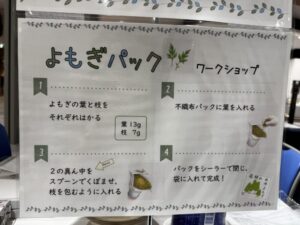 よもぎパック
ワークショップ
1
よもぎの葉と枝を
それぞれはかる
葉 13g
枝 7g
2
不織布パックに葉を入れる
3
2の真ん中を
スプーンでくぼませ、
枝を包むように入れる
4
パックをシーラーで閉じ、
袋に入れて完成！